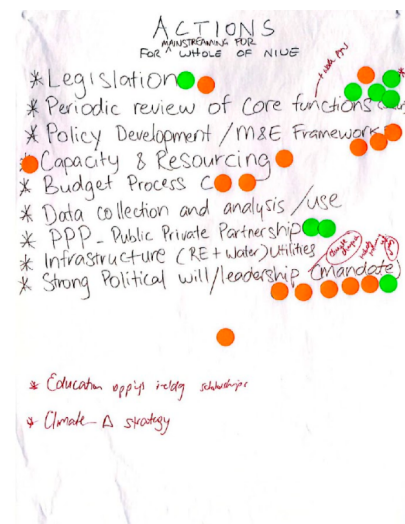 ACTIONS
MAINSTREAMING FOR
FOR WHOLE OF NIUE
* Legislation
* Periodic review of core functions
* Policy Development / M&E Framework
Capacity & Resourcing
* Budget Process C
* Data collection and analysis / use
* PPP - Public Private Partnership
* Infrastructure (RE + Water) Utilities
* Strong Political will/leadership (Mandate)
* Education scholarships
* Climate Δ strategy